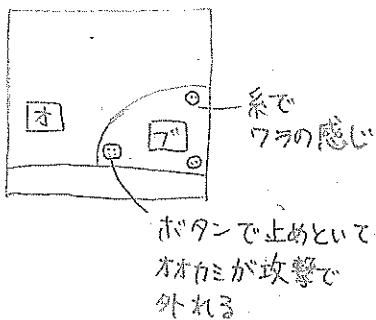 オ
ブ
糸で
ワラの感じ
ボタンで止めといて
オオカミが攻撃で
外れる